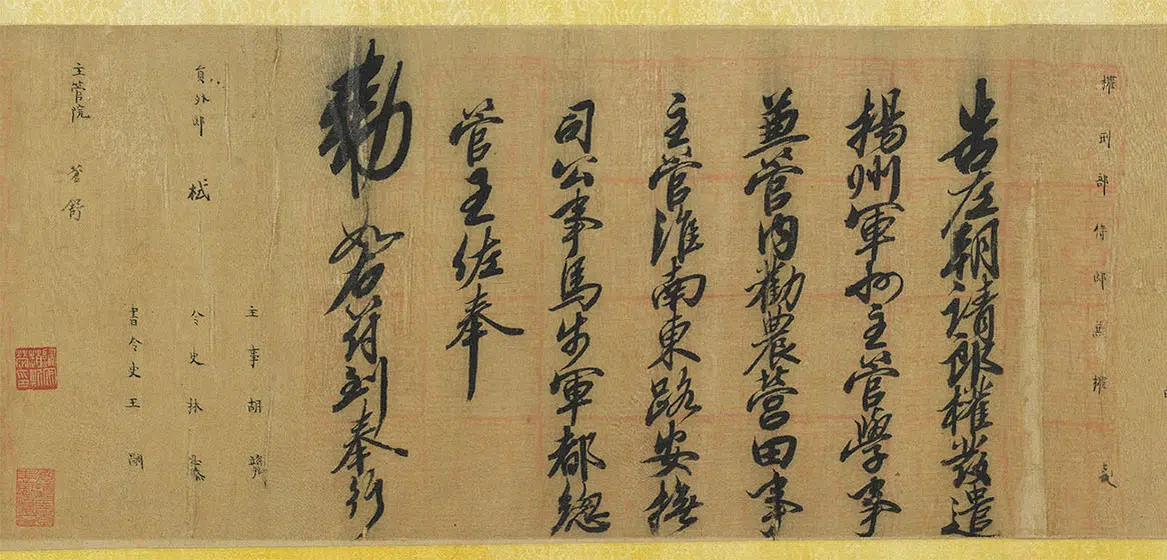 權刑部侍郎兼權
告左朝請郎權發遣
揚州軍州主管學事
兼管內勸農營田事
主管淮南東路安撫
司公事馬步軍都總
管王佐奉
勑如右符到奉行
主事胡
員外郎 栻 令史林
書令史王
主管院 蒼舒